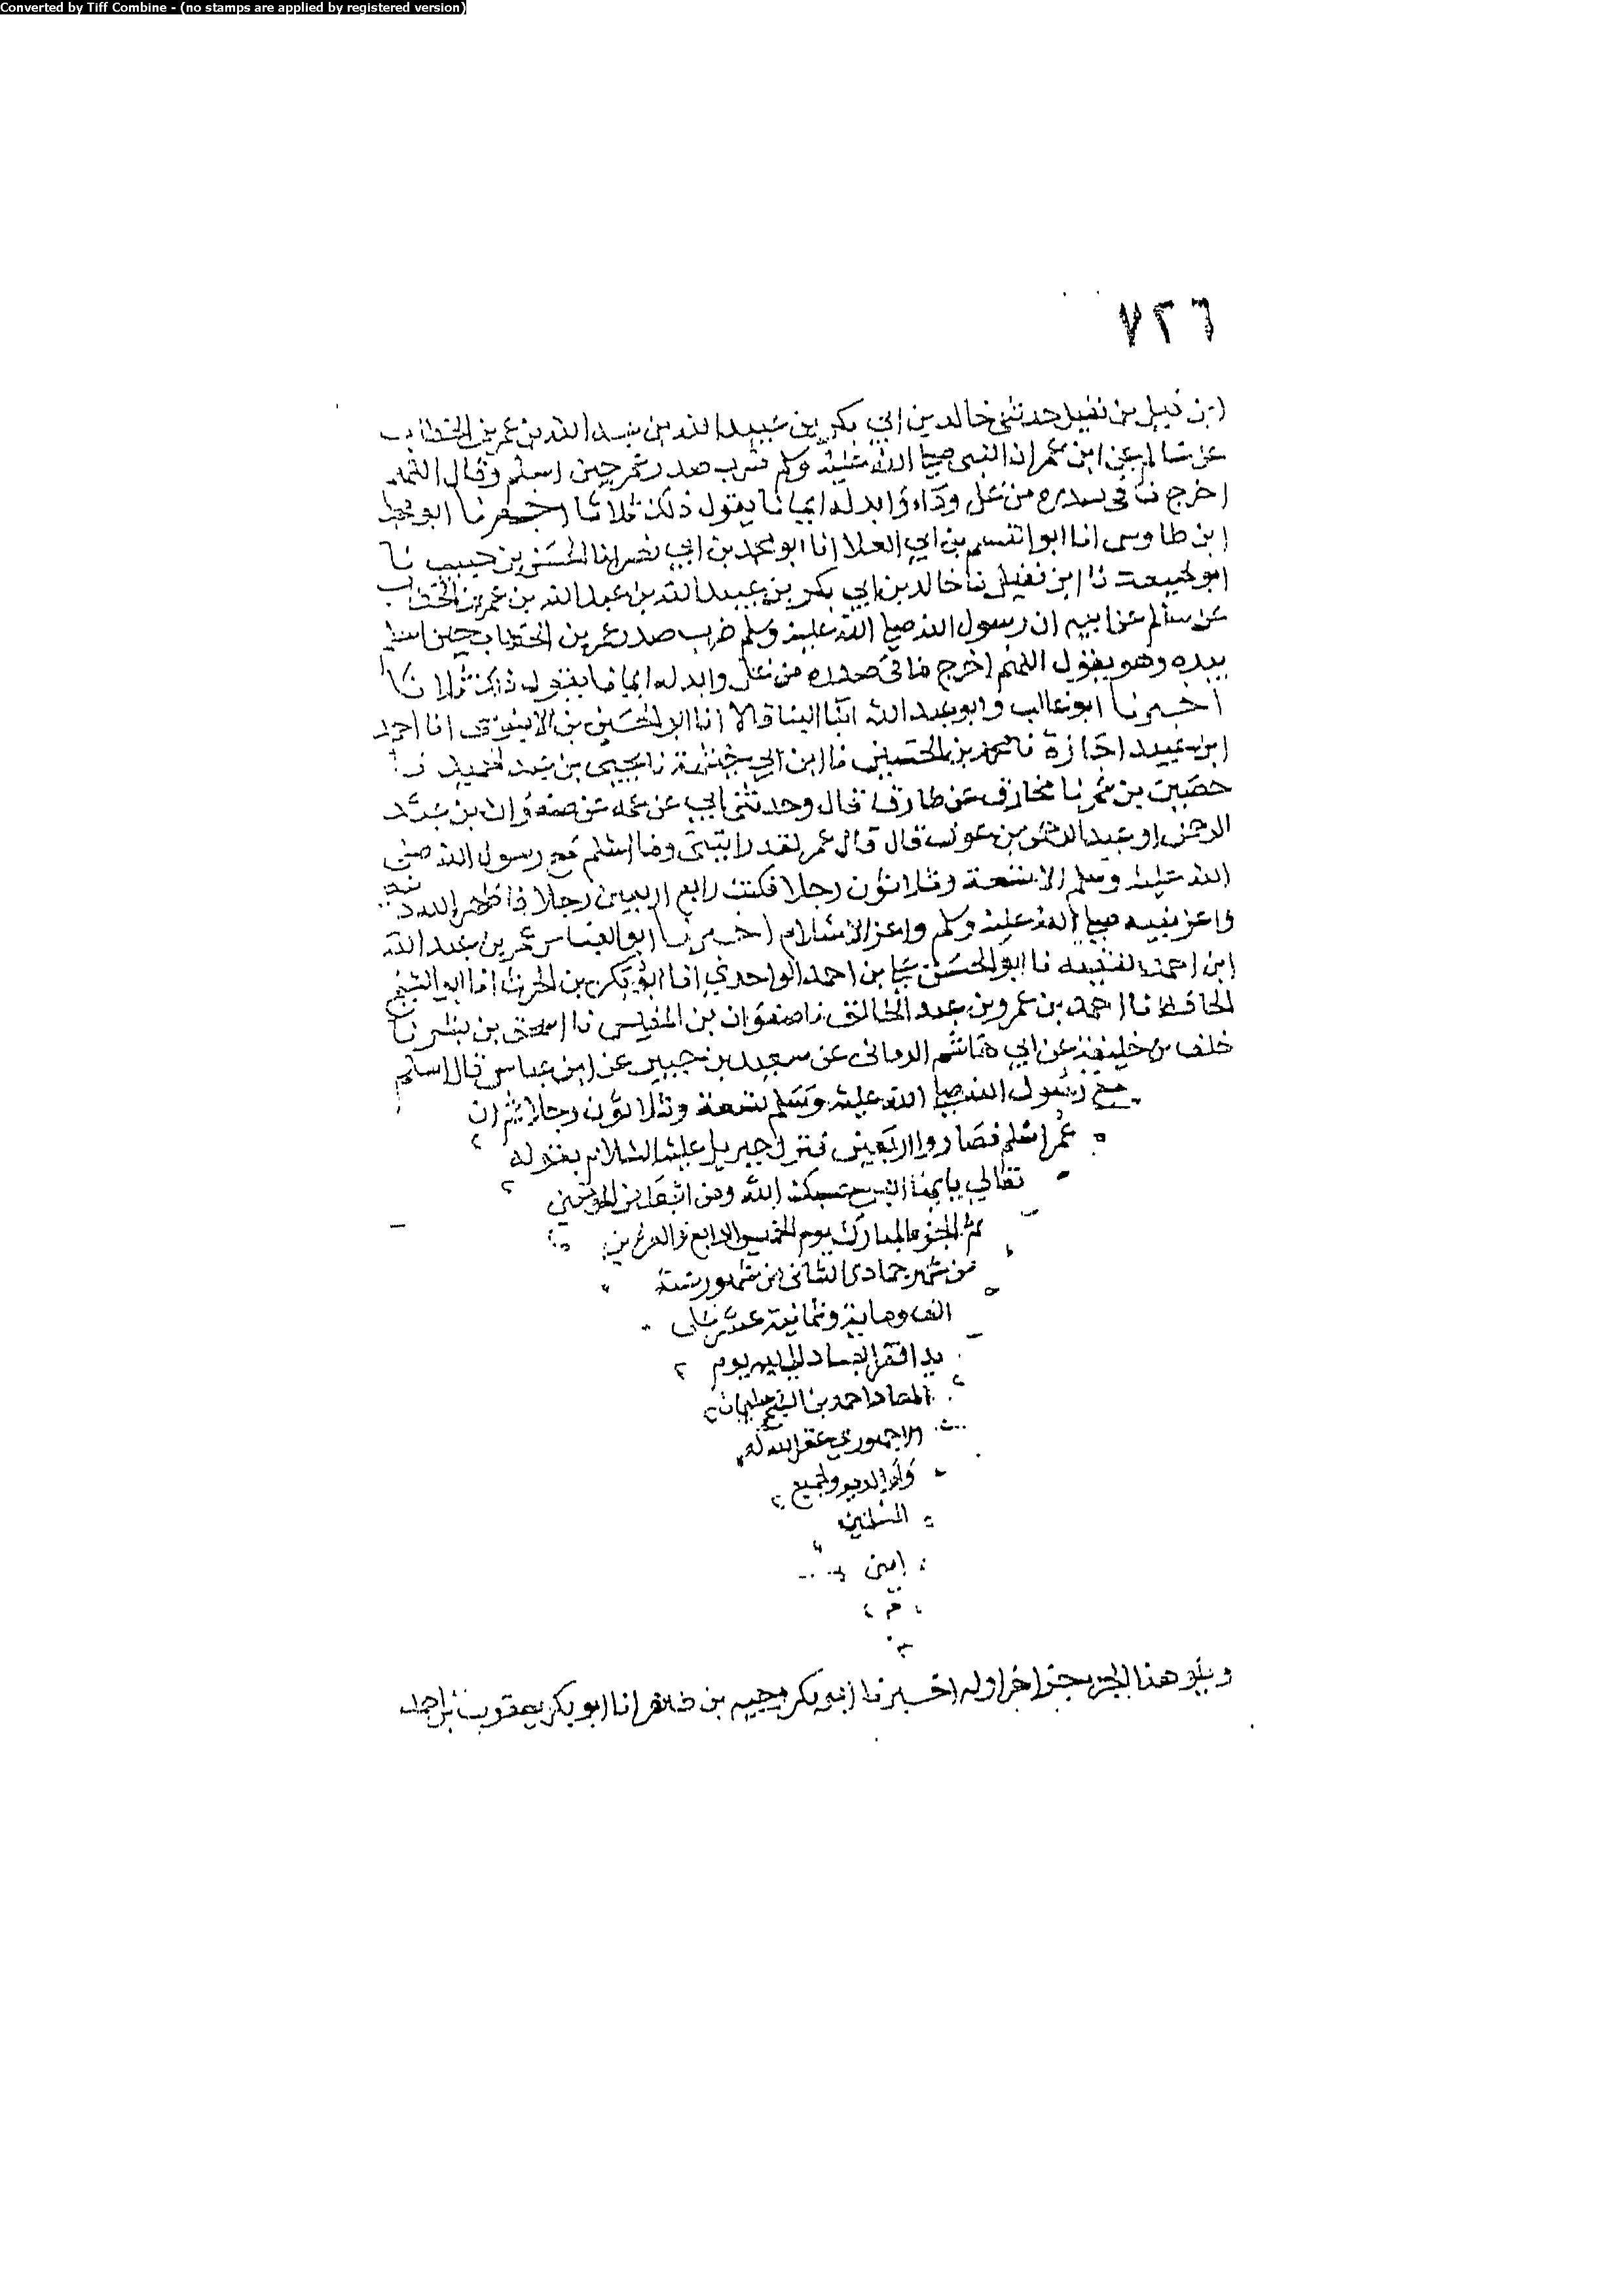 Converted by Tiff Combine - (no stamps are applied by registered version)
٧٢٦
ابن نفيل حدثني خالد بن ابي بكر بن عبيد الله بن عبد الله بن عمر بن الخطاب
عن سالم عن ابن عمر ان النبي صلى الله عليه وسلم ضرب صدر عمر حين اسلم وقال اللهم
اخرج ما في صدره من غل وداء وابدله ايمانا يقول ذلك ثلاثا اخبرنا ابو محمد
ابن طاوس انا ابو القسم بن ابي العلا انا ابو محمد بن ابي نصر انا الحسن بن حبيب نا
ابو امية نا ابن نفيل نا خالد بن ابي بكر بن عبيد الله بن عبد الله بن عمر بن الخطاب
عن سالم عن ابيه ان رسول الله صلى الله عليه وسلم ضرب صدر عمر بن الخطاب حين اسلم
بيده وهو يقول اللهم اخرج ما في صدره من غل وابدله ايمانا يقول ذلك ثلاثا
اخبرنا ابو غالب وابو عبد الله ابنا البنا قالا انا ابو الحسين بن الابنوسي انا احمد
ابن عبيد اجازة نا محمد بن الحسين نا ابن ابي خيثمة نا يحيى بن عبد الحميد نا
حصين بن عمر نا مخارق عن طارق قال وحدثني ابي عن عمه عن صفوان بن عبد
الرحمن او عبد الرحمن بن عوف قال قال عمر لقد رايتني وما اسلم مع رسول الله صلى
الله عليه وسلم الا تسعة وثلاثون رجلا فكنت رابع اربعين رجلا فاظهر الله دينه
واعز نبيه صلى الله عليه وسلم واعز الاسلام اخبرنا ابو العباس عمر بن عبد الله
ابن احمد الفقيه نا ابو الحسن علي بن احمد الواحدي انا ابو بكر بن الحرث انا ابو الشيخ
الحافظ نا احمد بن عمرو بن عبد الخالق نا صفوان بن المغلس نا اسحق بن بشر نا
خلف بن خليفة عن ابي هاشم الرماني عن سعيد بن جبير عن ابن عباس قال اسلم
مع رسول الله صلى الله عليه وسلم تسعة وثلاثون رجلا ثم ان
عمر اسلم فصاروا اربعين فنزل جبريل عليه السلام بقوله
تعالى يا ايها النبي حسبك الله ومن اتبعك من المؤمنين
تم الجزء المبارك يوم الخميس الرابع والعشرين
من شهر جمادى الثاني من شهور سنة
الف ومايه وثمانية عشر على
يد افقر العباد اليه يوم
المعاد احمد بن الشيخ سليمان
الاجهوري غفر الله له
ولوالديه ولجميع
المسلمين
امين
م
ويتلو هذا الجزء جزء اخر اوله اخبرنا ابو بكر وجيه بن طاهر انا ابو بكر يعقوب بن احمد